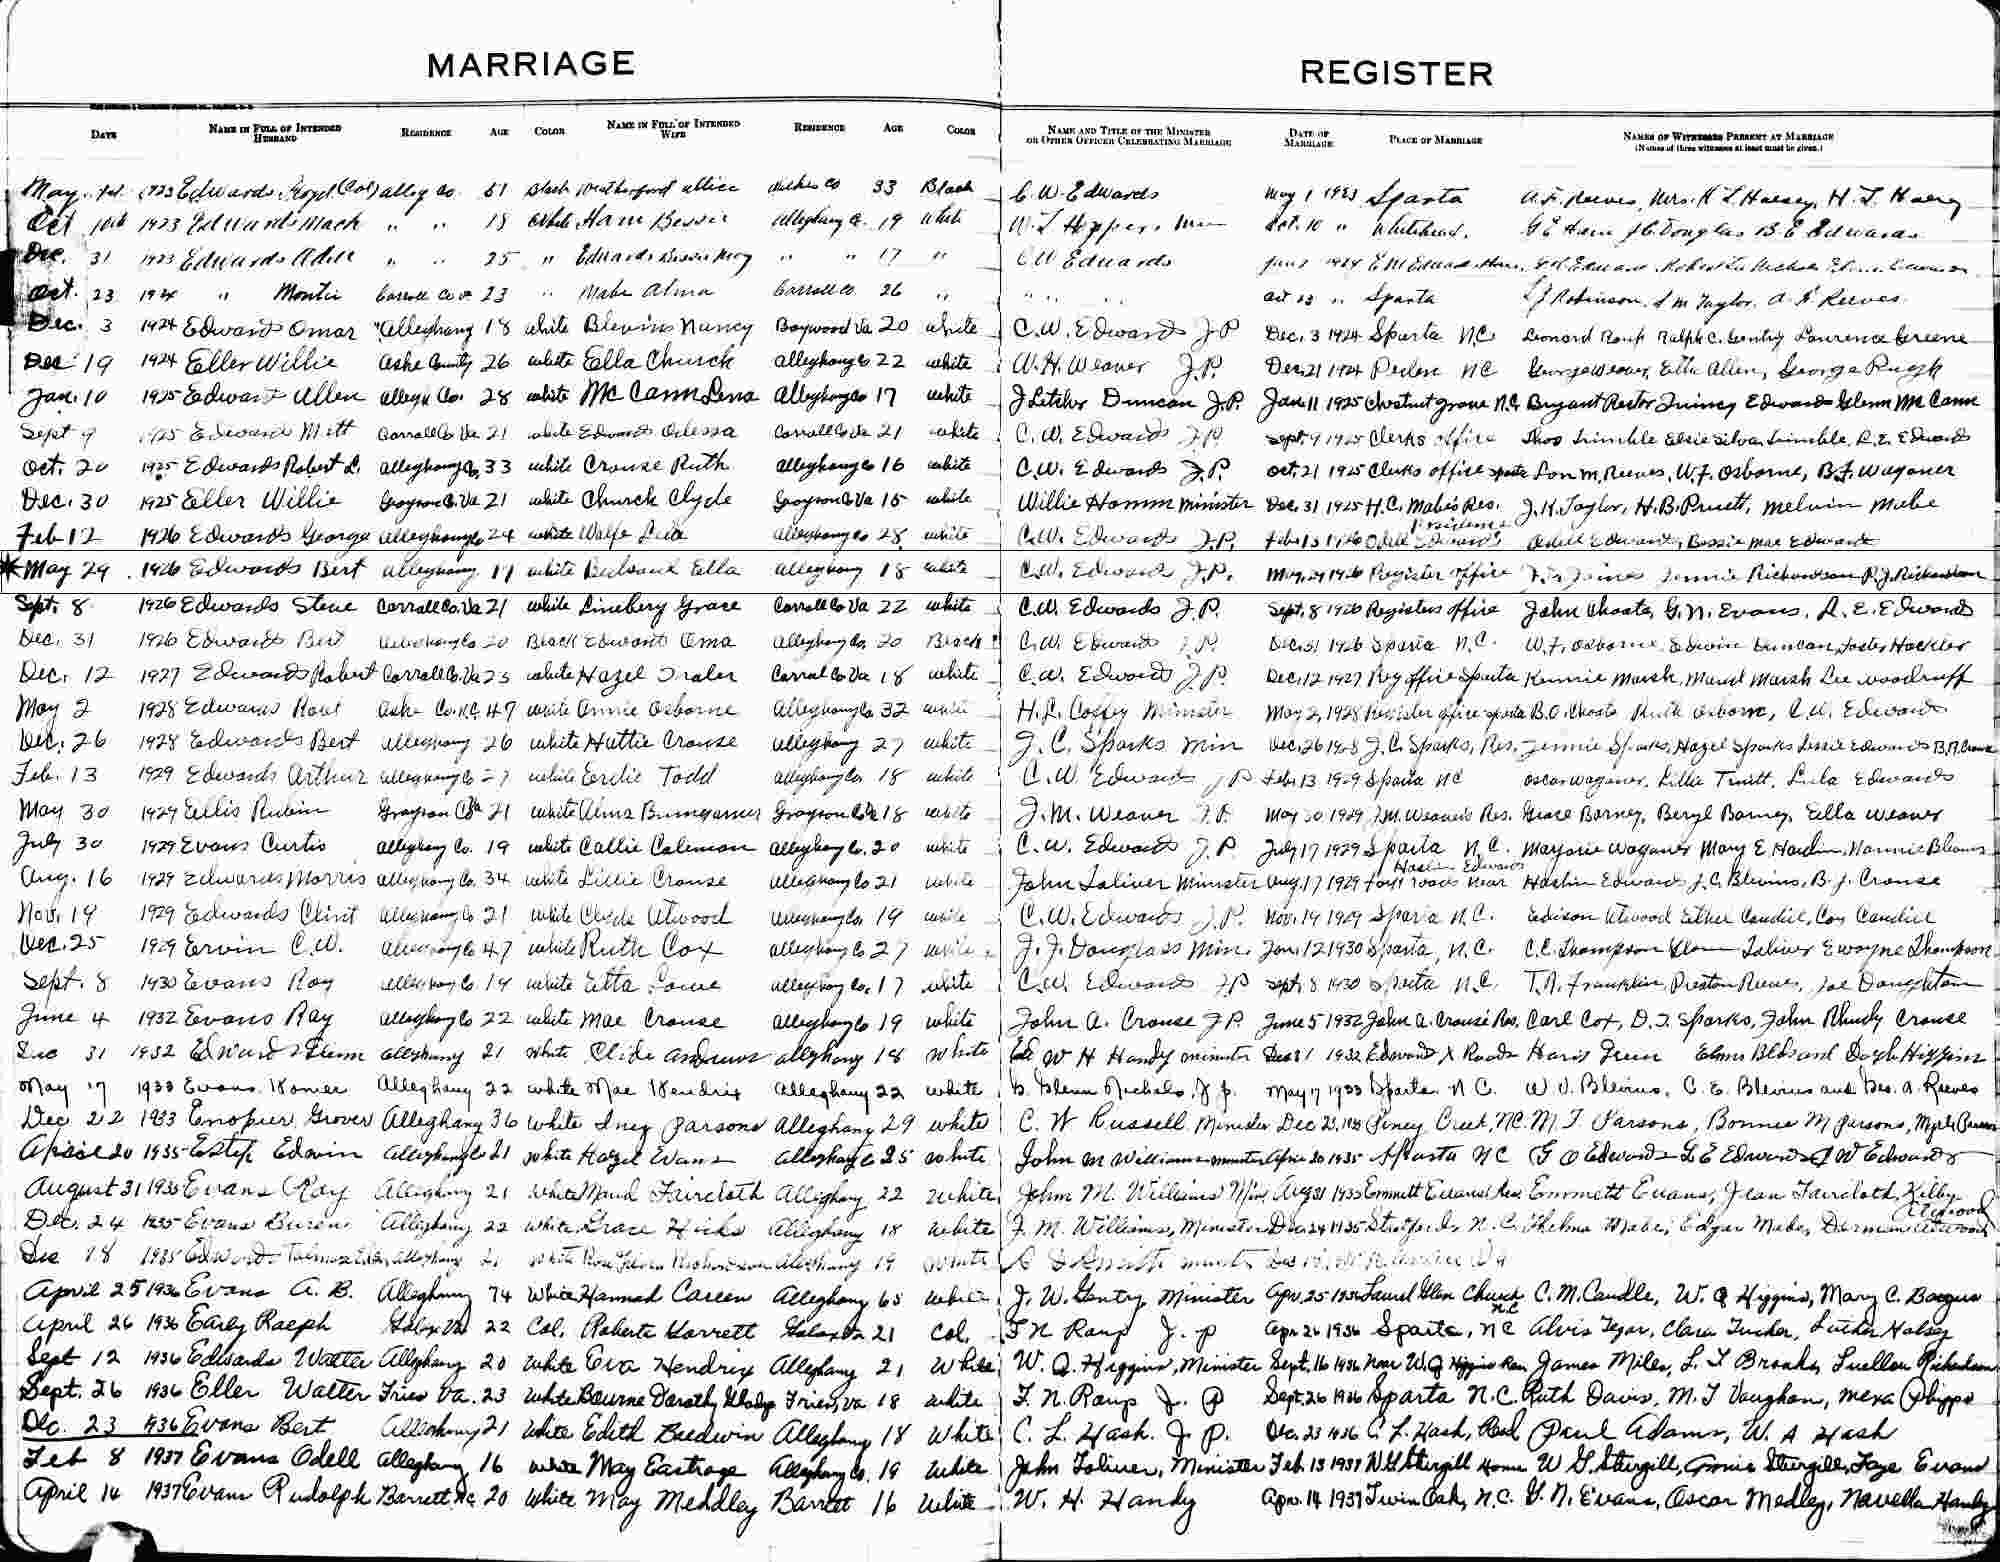 MARRIAGE REGISTER
DATE NAME IN FULL OF INTENDED HUSBAND RESIDENCE AGE COLOR NAME IN FULL OF INTENDED WIFE RESIDENCE AGE COLOR NAME AND TITLE OF THE MINISTER OR OTHER OFFICER CELEBRATING MARRIAGE DATE OF MARRIAGE PLACE OF MARRIAGE NAMES OF WITNESSES PRESENT AT MARRIAGE (Names of three witnesses at least must be given.)
May 1st 1923 Edwards Floyd (Col) Alleg Co. 51 Black Weatherford Allice Wilkes Co 33 Black C. W. Edwards May 1 1923 Sparta A. F. Reeves, Mrs. H L Halsey, H. L.
Oct 10th 1923 Edwards Mack " " 18 White Ham Bessie Alleghany Co. 19 White W. L Hopper, Min Oct. 10 " Whitehead. G E Ham J C Douglas B. E Edwards
Dec. 31 1923 Edwards Odell " " 25 " Edwards Bessie May " " 17 " C W Edwards Jan 1 1924 E M Edwards Home
Oct. 23 1924 " Montie Carroll Co Va 23 " Mabe Alma Carroll Co. 26 " " " " Oct 23 " Sparta L J Robinson, S M Taylor, A F Reeves
Dec. 3 1924 Edwards Omar Alleghany 18 White Blevins Nancy Baywood Va 20 White C. W. Edwards J P Dec. 3 1924 Sparta N C Leonard Roup Ralph C. Gentry Lawrence Greene
Dec 19 1924 Eller Willie Ashe County 26 White Ella Church Alleghany Co 22 White W. H. Weaver J. P. Dec. 21 1924 Peden N C George Weaver, Ella Allen, George Pugh
Jan. 10 1925 Edwards Allen Allegh Co. 28 White Mc Cann Lena Alleghany Co 17 White J Letcher Duncan J. P. Jan. 11 1925 Chestnut Grove N.C. Bryant Rector Quincy Edwards Glenn McCann
Sept 9 1925 Edwards Mitt Carroll Co. Va 21 White Edwards Odessa Carroll Co Va 21 White C. W. Edwards J. P. Sept. 9 1925 Clerks office Thos Trimble Elsie Silva Trimble, R. E. Edwards
Oct. 20 1925 Edwards Robert L. Alleghany Co. 33 White Crouse Ruth Alleghany Co 16 White C. W. Edwards J. P. Oct. 21 1925 Clerks office Sparta Lon M. Reeves, W. F. Osborne, B. F. Wagoner
Dec. 30 1925 Eller Willie Grayson Co. Va 21 White Church Clyde Grayson Co Va 15 White Willie Hamm Minister Dec. 31 1925 H. C. Mabe's Res. J. K. Taylor, H. B. Pruett, Melvin Mabe
Feb 12 1926 Edwards George Alleghany Co 24 White Wolfe Lula Alleghany Co 28 White C. W. Edwards J. P. Feb 13 1926 Odell Edwards Residence Odell Edwards, Bessie Mae Edwards
* May 29 1926 Edwards Bert Alleghany 17 White Bedsaul Ella Alleghany 18 White C. W. Edwards J. P. May 29 1926 Register office Joines Jennie Richardson R. J. Richardson
Sept. 8 1926 Edwards Steve Carroll Co. Va 21 White Lineberry Grace Carroll Co Va 22 White C. W. Edwards J. P. Sept. 8 1926 Registers office John Choate, G. N. Evans, R. E. Edwards
Dec. 31 1926 Edwards Bert Alleghany Co 20 Black Edwards Oma Alleghany Co 20 Black C. W. Edwards J. P. Dec. 31 1926 Sparta N. C. W. F. Osborne, Edwin Duncan, Foster Hackler
Dec. 12 1927 Edwards Robert Carroll Co. Va 23 White Hazel Traler Carroll Co Va 18 White C. W. Edwards J. P. Dec. 12 1927 Reg office Sparta Kennie Marsh, Maud Marsh Lee Woodruff
May 2 1928 Edwards Rout Ashe Co. N.C. 47 White Annie Osborne Alleghany Co 32 White H. L. Coffey Minister May 2, 1928 Register office Sparta B. O. Choate Ruth Osborne, C. W. Edwards
Dec. 26 1928 Edwards Bert Alleghany 26 White Hattie Crouse Alleghany 27 White J. C. Sparks Min Dec. 26 1928 J. C. Sparks, Res. Jennie Sparks, Hazel Sparks Lessie Edwards B. R. Crouse
Feb. 13 1929 Edwards Arthur Alleghany Co 27 White Erdie Todd Alleghany Co. 18 White C. W. Edwards J P Feb. 13 1929 Sparta N C Oscar Wagoner, Lillie Truitt, Lula Edwards
May 30 1929 Ellis Rubin Grayson Co Va 21 White Alma Bumgarner Grayson Co Va 18 White J. M. Weaver J. P. May 30 1929 J. M. Weaver's Res. Grace Barney, Beryl Barney, Ella Weaver
July 30 1929 Evans Curtis Alleghany Co. 19 White Callie Coleman Alleghany Co. 20 White C. W. Edwards J. P. July 17 1929 Sparta N. C. Marjorie Wagoner Mary E Hardin, Nannie Blevins
Aug. 16 1929 Edwards Morris Alleghany Co. 34 White Lillie Crouse Alleghany Co 21 White John Toliver Minister Aug. 17 1929 four roads near Haskin Edwards Haskin Edwards J. C. Blevins, B. J. Crouse
Nov. 19 1929 Edwards Clint Alleghany Co 21 White Clyde Atwood Alleghany Co. 19 White C. W. Edwards J. P. Nov. 19 1929 Sparta N. C. Edison Atwood Esther Caudill, Coy Caudill
Dec. 25 1929 Ervin C. W. Alleghany Co 47 White Ruth Cox Alleghany Co 27 White J. J. Douglass Min. Jan. 12 1930 Sparta, N. C. C. C. Thompson Toliver Ewayne Thompson
Sept. 8 1930 Evans Roy Alleghany Co. 19 White Etta Lowe Alleghany Co. 17 White C. W. Edwards J P Sept. 8 1930 Sparta N. C. T. R. Franklin, Preston Reeves, Joe Doughton
June 4 1932 Evans Ray Alleghany Co 22 White Mae Crouse Alleghany Co 19 White John A. Crouse J P. June 5 1932 John A. Crouse Res. Carl Cox, D. T. Sparks, John Rhudy Crouse
Dec 31 1932 Edwards Glenn Alleghany 21 White Clide Andrews Alleghany 18 White W H Handy Minister Dec 31 1932 Edwards X Roads Haris Green Elmer Bedsaul Doyle Higgins
May 17 1933 Evans Homer Alleghany 22 White Mae Hendrix Alleghany 22 White D. Glenn Nichols, J. P. May 17 1933 Sparta N. C. W. V. Blevins, C. E. Blevins and Geo. A. Reeves
Dec 22 1933 Grover Alleghany 36 White Inez Parsons Alleghany 29 White C. W Russell Minister Dec 23, 1933 Piney Creek, N.C. M. T Parsons, Bonnie M Parsons, Myrtle Parsons
April 20 1935 Estep Edwin Alleghany Co 21 White Hazel Evans Alleghany Co 25 White John M Williams Minister April 20 1935 Sparta N C G O Edwards L E Edwards J W Edwards
August 31 1935 Evans Ray Alleghany 21 White Maud Faircloth Alleghany 22 White John M. Williams Min. Aug 31 1935 Emmett Evans Res. Emmett Evans, Jean Faircloth, Kilby Atwood
Dec. 24 1935 Evans Buren Alleghany 22 White Grace Hicks Alleghany 18 White J. M. Williams, Minister Dec 24 1935 Stratford, N. C. Thelma Mabe, Edgar Mabe, Durman Atwood
Dec 18 1935 Edwards Alleghany 21 White Rosa Richardson Alleghany 19 White Smith Minister Dec 18
April 25 1936 Evans A. B. Alleghany 74 White Hannah Careen Alleghany 65 White J. W. Gentry, Minister Apr. 25 1936 Laurel Glen Church N C C. M. Caudle, W. Q Higgins, Mary C. Boogus
April 26 1936 Early Raeph Galax Va 22 Col. Roberta Garrett Galax Va 21 Col. F N Roup J. P Apr. 26 1936 Sparta, N C Alvis Tezar, Clara Tucker, Luther Halsey
Sept 12 1936 Edwards Walter Alleghany 20 White Eva Hendrix Alleghany 21 White W. Q. Higgins, Minister Sept. 16 1936 Near W. Q Higgins Res James Miles, L. T Brooks, Luellen Richardson
Sept. 26 1936 Eller Walter Fries Va. 23 White Bourne Dorothy Gladys Fries, Va 18 White F. N. Roup J. P Sept. 26 1936 Sparta N. C. Ruth Davis, M. T Vaughan, Mexa Phipps
Dec. 23 1936 Evans Bert Alleghany 21 White Edith Baldwin Alleghany 18 White C. L. Hash. J. P. Dec. 23 1936 C. L. Hash, Res Paul Adams, W. A Hash
Feb 8 1937 Evans Odell Alleghany 16 White May Eastrage Alleghany Co. 19 White John Toliver, Minister Feb. 13 1937 W G Sturgill Home W G. Sturgill, Annie Sturgill, Faye Evans
April 14 1937 Evans Rudolph Barrett N.C. 20 White May Meddley Barrett 16 White W. H. Handy Apr. 14 1937 Twin Oak, N. C. G. N. Evans, Oscar Medley, Novella Handy